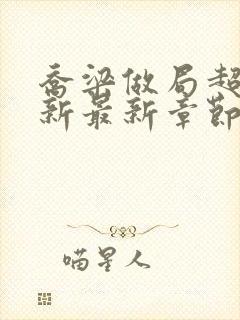 乔梁做局超
新最新章節
喵星人